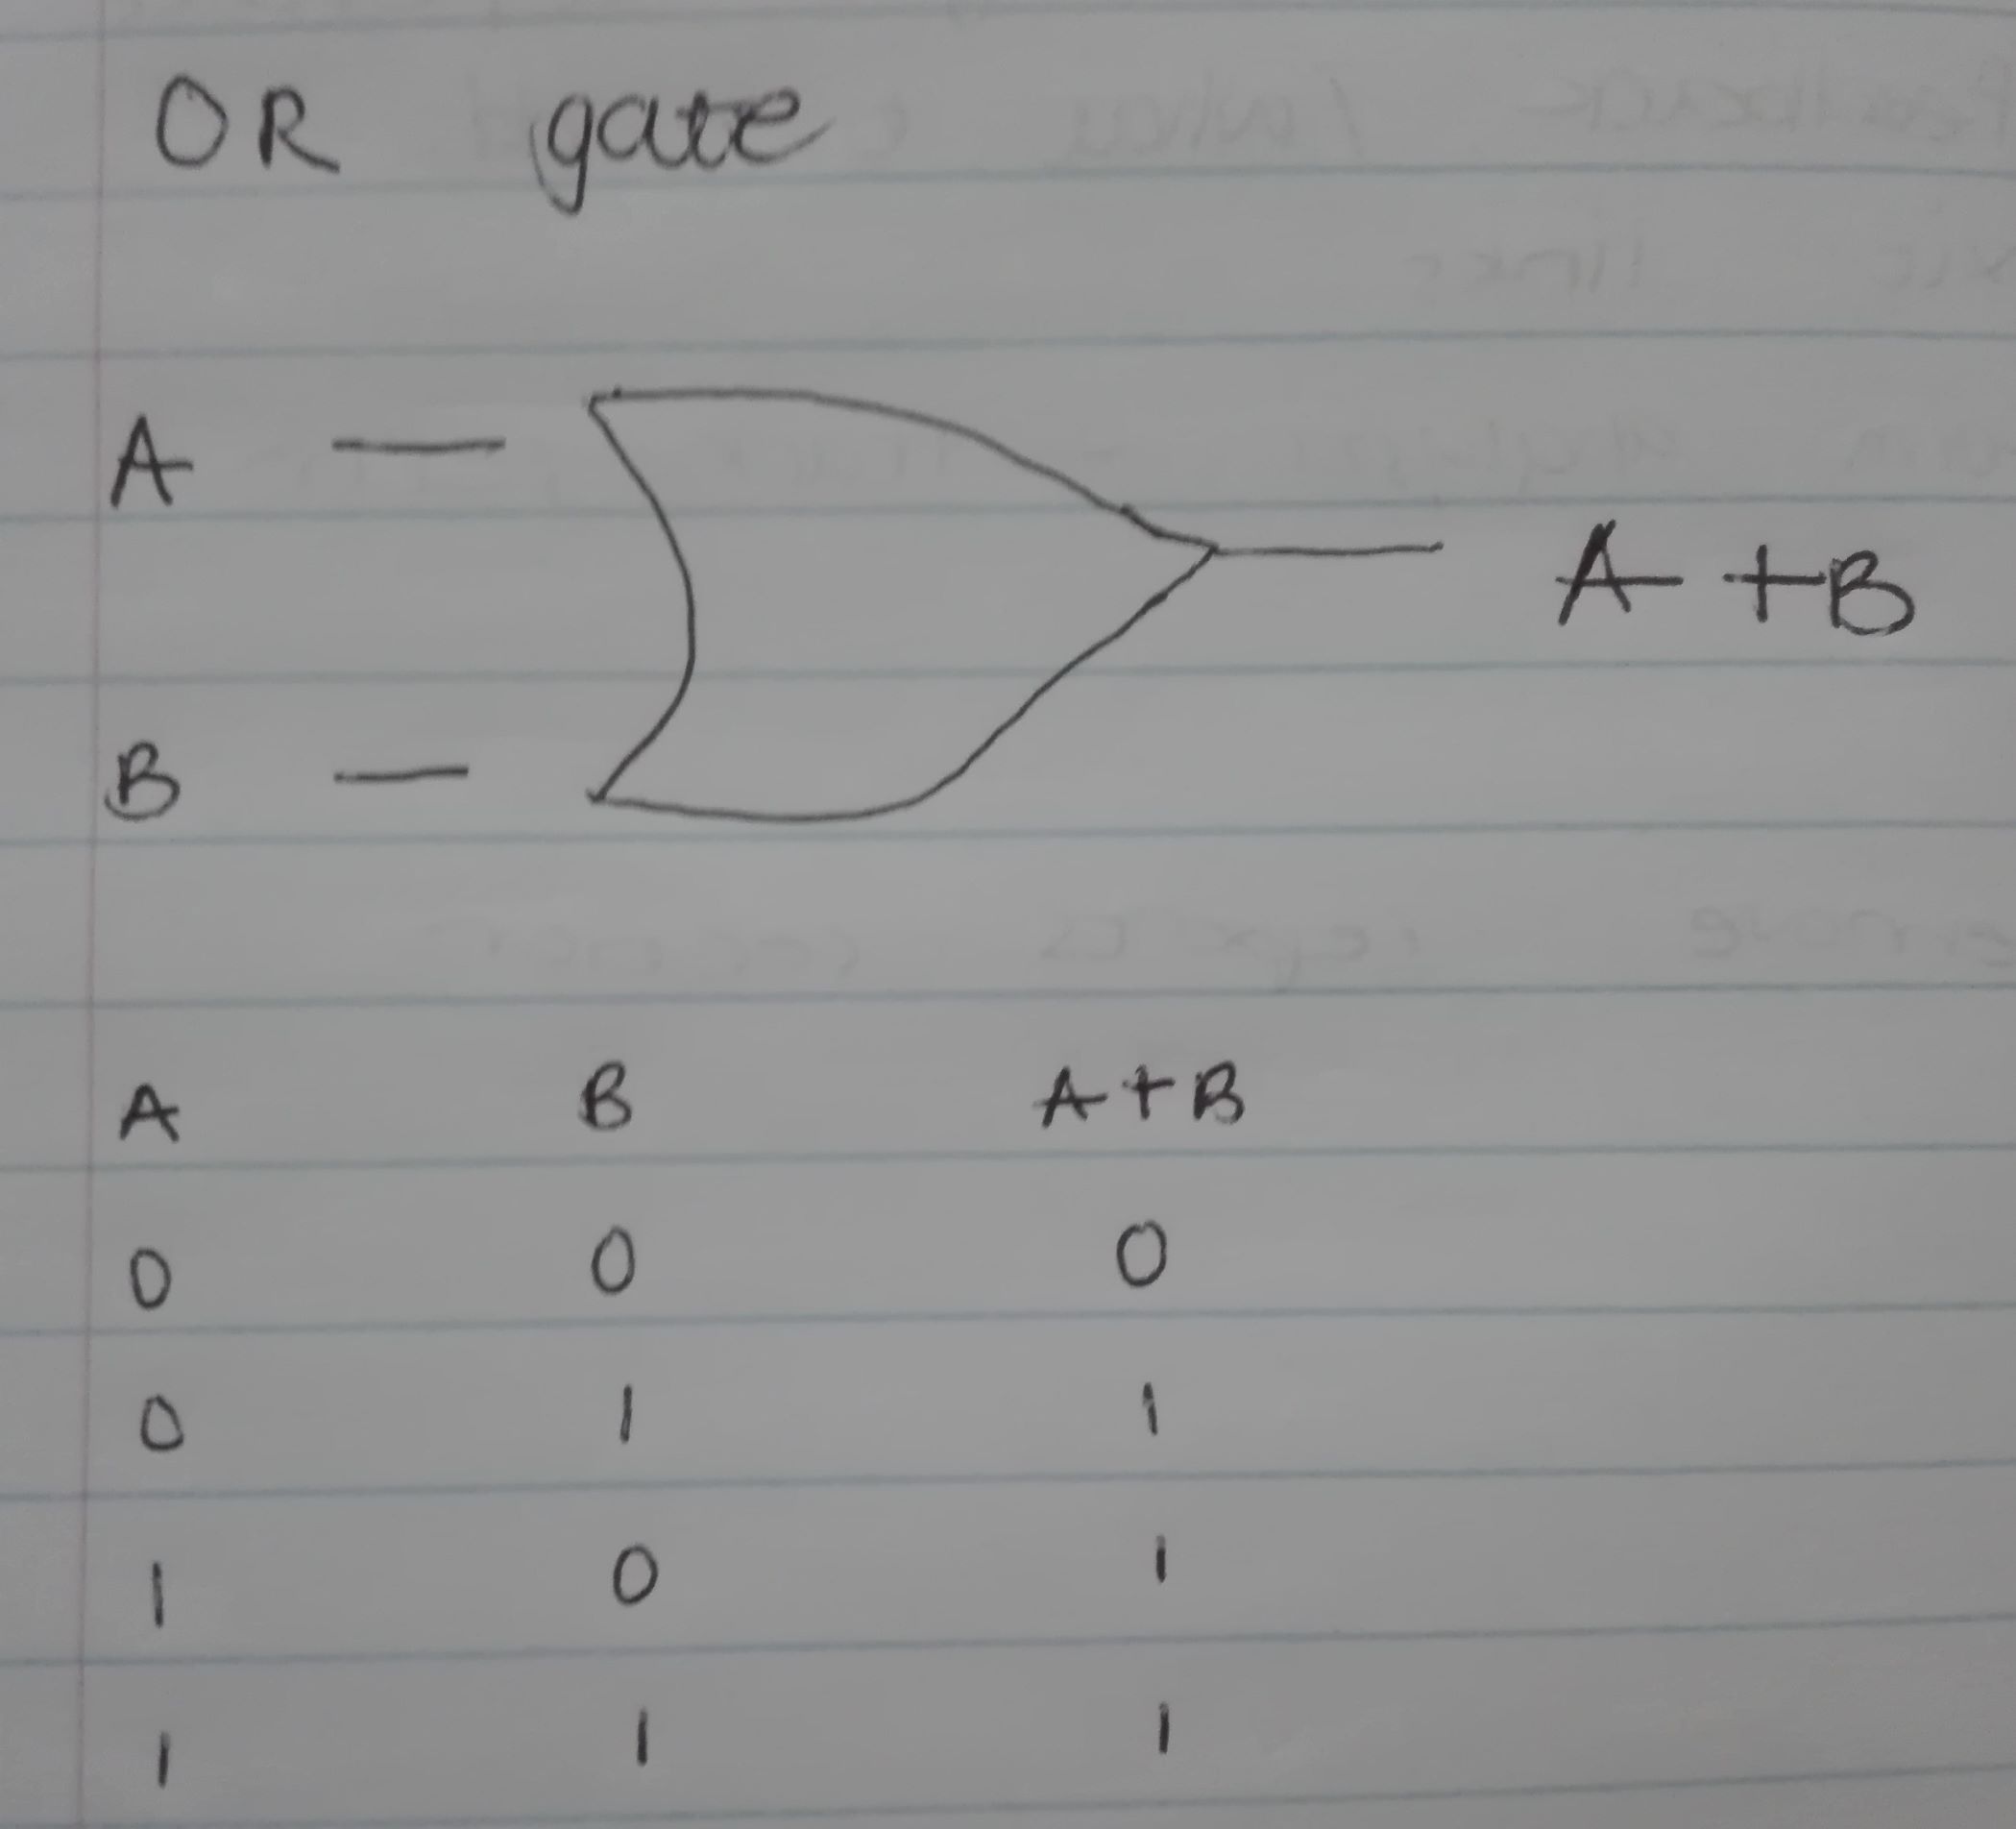 OR gate
A
A+B
B
A B A+B
0 0 0
0 1 1
1 0 1
1 1 1